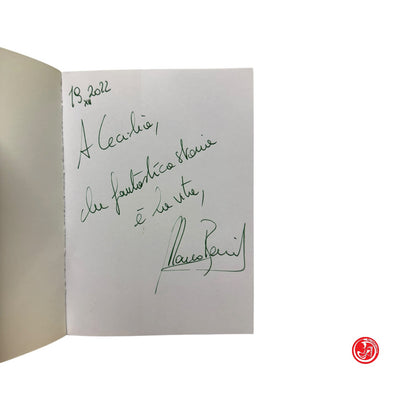 19 XII 2022
A Cecilia,
che fantastica storia
è la vita,